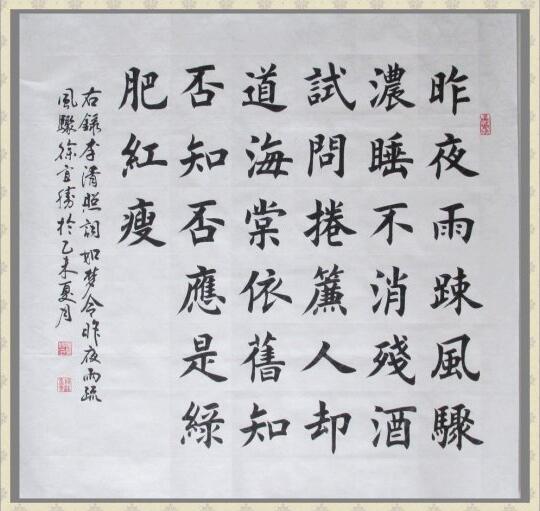 昨夜雨踈風驟
濃睡不消殘酒
試問捲簾人却
道海棠依舊知
否知否應是綠
肥紅瘦
右録李清照詞如梦令昨夜雨疏
風驟徐宜勝於乙未夏月